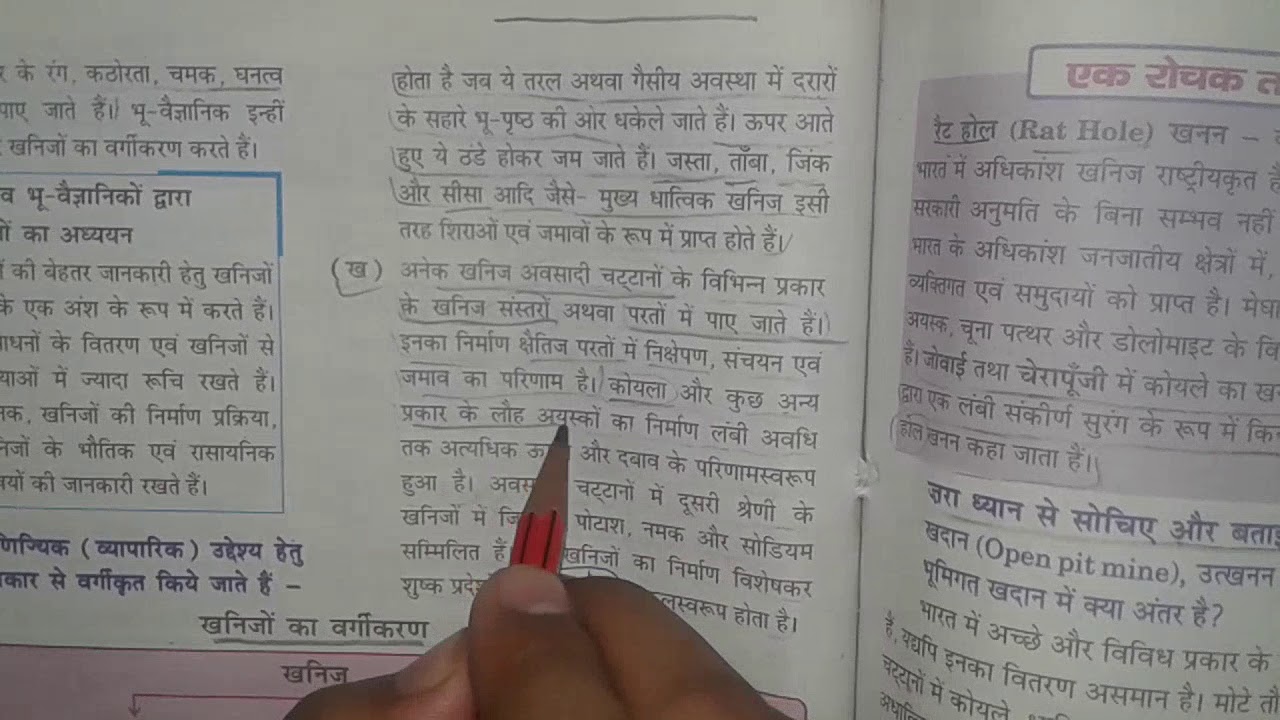 के रंग, कठोरता, चमक, घनत्व
पाए जाते हैं। भू-वैज्ञानिक इन्हीं
खनिजों का वर्गीकरण करते हैं।
व भू-वैज्ञानिकों द्वारा
का अध्ययन
की बेहतर जानकारी हेतु खनिजों
के एक अंश के रूप में करते हैं।
के वितरण एवं खनिजों से
में ज्यादा रूचि रखते हैं।
खनिजों की निर्माण प्रक्रिया,
के भौतिक एवं रासायनिक
की जानकारी रखते हैं।
(व्यापारिक) उद्देश्य हेतु
से वर्गीकृत किये जाते हैं –
खनिजों का वर्गीकरण
खनिज
होता है जब ये तरल अथवा गैसीय अवस्था में दरारों
के सहारे भू-पृष्ठ की ओर धकेले जाते हैं। ऊपर आते
हुए ये ठंडे होकर जम जाते हैं। जस्ता, ताँबा, जिंक
और सीसा आदि जैसे- मुख्य धात्विक खनिज इसी
तरह शिराओं एवं जमावों के रूप में प्राप्त होते हैं।
(ख) अनेक खनिज अवसादी चट्टानों के विभिन्न प्रकार
के खनिज संस्तरों अथवा परतों में पाए जाते हैं।
इनका निर्माण क्षैतिज परतों में निक्षेपण, संचयन एवं
जमाव का परिणाम है। कोयला और कुछ अन्य
प्रकार के लौह अयस्कों का निर्माण लंबी अवधि
तक अत्यधिक और दबाव के परिणामस्वरूप
हुआ है। चट्टानों में दूसरी श्रेणी के
खनिजों में पोटाश, नमक और सोडियम
सम्मिलित हैं खनिजों का निर्माण विशेषकर
शुष्क होता है।
एक रोचक
रैट होल (Rat Hole) खनन –
भारत में अधिकांश खनिज राष्ट्रीयकृत
सरकारी अनुमति के बिना सम्भव नहीं
भारत के अधिकांश जनजातीय क्षेत्रों में,
व्यक्तिगत एवं समुदायों को प्राप्त है।
अयस्क, चूना पत्थर और डोलोमाइट के
हैं। जोवाई तथा चेरापूँजी में कोयले का
द्वारा एक लंबी संकीर्ण सुरंग के रूप में
होल खनन कहा जाता हैं।
ज़रा ध्यान से सोचिए और
खदान (Open pit mine), उत्खनन
भूमिगत खदान में क्या अंतर है?
भारत में अच्छे और विविध प्रकार के
हैं, यद्यपि इनका वितरण असमान है। मोटे
चट्टानों में कोयले,